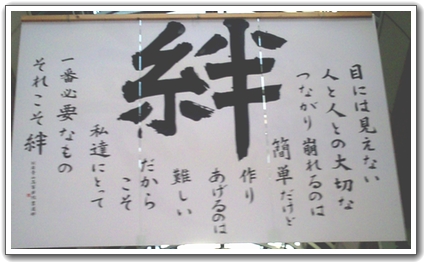 絆
目には見えない
人と人との大切な
つながり崩れるのは
簡単だけど
作り
あげるのは
難しい
だから
こそ
私達にとって
一番必要なもの
それこそ絆